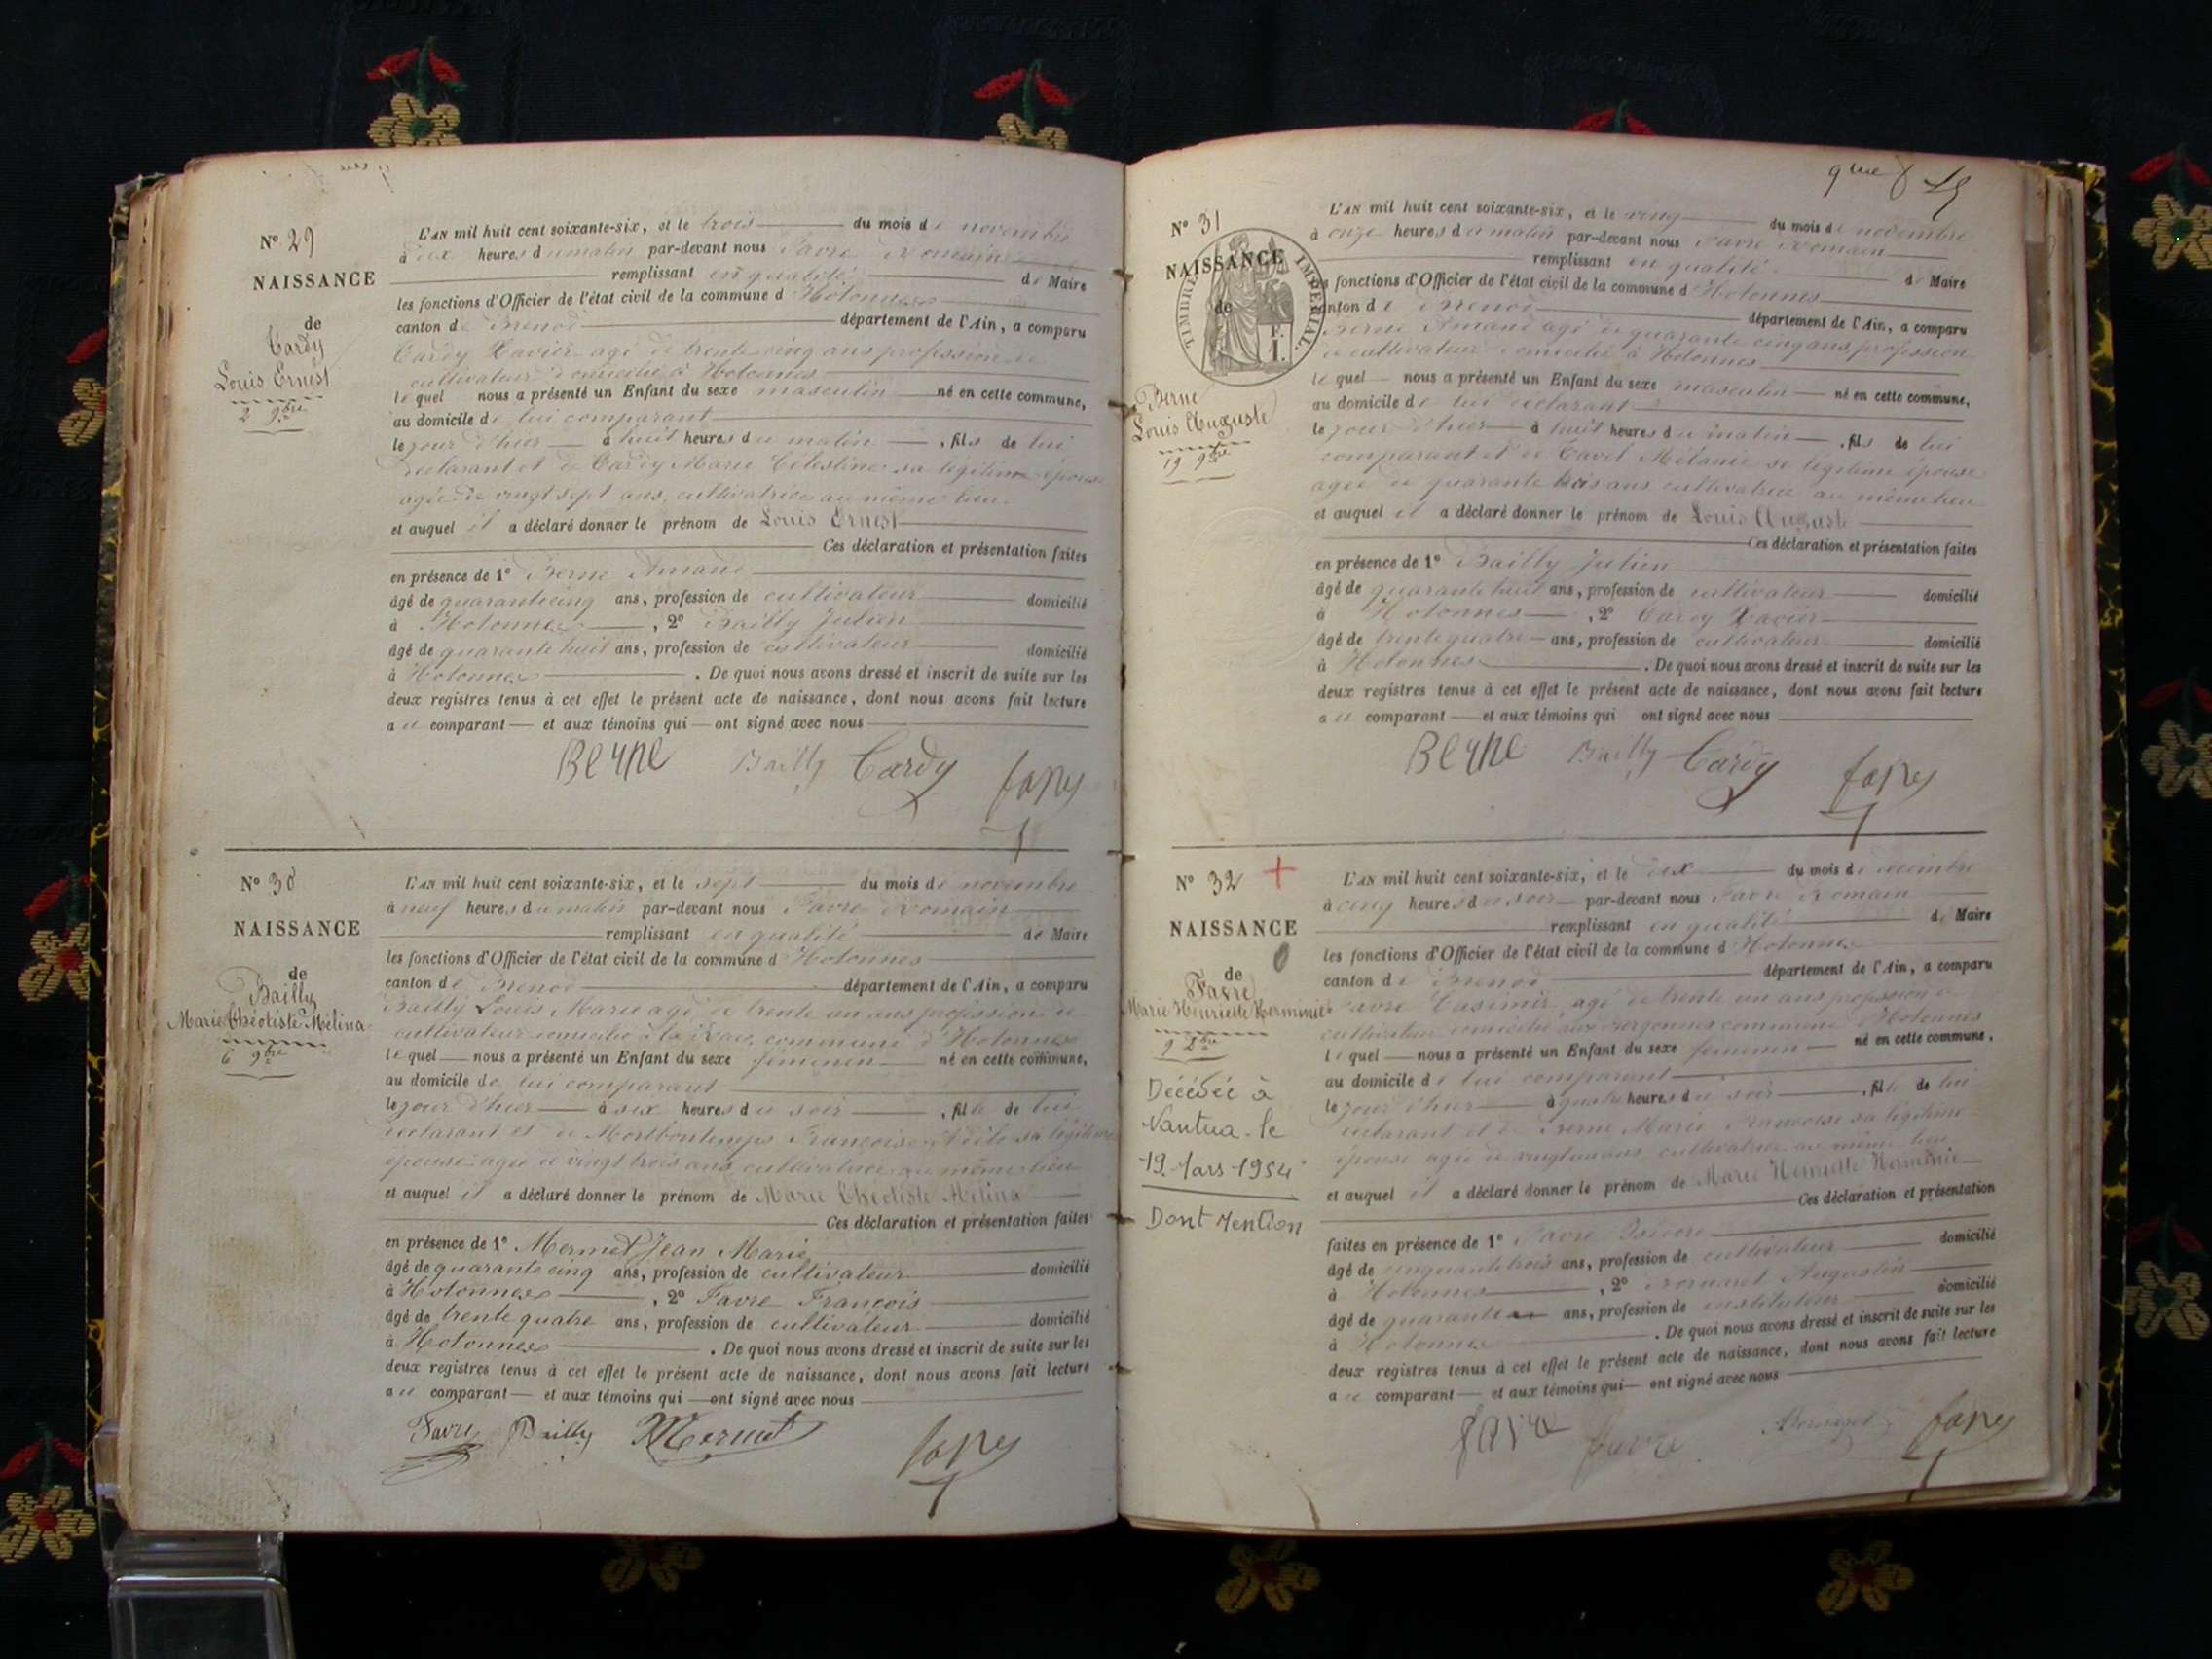 N° 29
NAISSANCE
de
Cardy
Louis Ernest
2 9bre
L'AN mil huit cent soixante-six, et le trois du mois de novembre
à dix heures du matin par-devant nous Favre Romain
remplissant en qualité de Maire
les fonctions d'Officier de l'état civil de la commune d'Hotonnes
canton de Brenod département de l'Ain, a comparu
Cardy Xavier agé de trente cinq ans profession de
cultivateur domicilié à Hotonnes
lequel nous a présenté un Enfant du sexe masculin né en cette commune,
au domicile de lui comparant
le jour d'hier à huit heures du matin, fils de lui
déclarant et de Cardy Marie Célestine sa légitime épouse
agée de vingt sept ans, cultivatrice au même lieu
et auquel il a déclaré donner le prénom de Louis Ernest
Ces déclaration et présentation faites
en présence de 1° Berne Amand
âgé de quarante cinq ans, profession de cultivateur domicilié
à Hotonnes, 2° Bailly Julien
âgé de quarante huit ans, profession de cultivateur domicilié
à Hotonnes. De quoi nous avons dressé et inscrit de suite sur les
deux registres tenus à cet effet le présent acte de naissance, dont nous avons fait lecture
au comparant et aux témoins qui ont signé avec nous
Berne Bailly Cardy favre
N° 30
NAISSANCE
de
Bailly
Marie Théotiste Mélina
6 9bre
L'AN mil huit cent soixante-six, et le sept du mois de novembre
à neuf heures du matin par-devant nous Favre Romain
remplissant en qualité de Maire
les fonctions d'Officier de l'état civil de la commune d'Hotonnes
canton de Brenod département de l'Ain, a comparu
Bailly Louis Marie agé de trente un ans profession de
cultivateur domicilié à la commune d'Hotonnes
lequel nous a présenté un Enfant du sexe féminin né en cette commune,
au domicile de lui comparant
le jour d'hier à six heures du soir, fille de lui
déclarant et de Françoise sa légitime
épouse agée de vingt trois ans cultivatrice au même lieu
et auquel il a déclaré donner le prénom de Marie Théotiste Mélina
Ces déclaration et présentation faites
en présence de 1° Mermet Jean Marie
âgé de quarante cinq ans, profession de cultivateur domicilié
à Hotonnes, 2° Favre François
âgé de trente quatre ans, profession de cultivateur domicilié
à Hotonnes. De quoi nous avons dressé et inscrit de suite sur les
deux registres tenus à cet effet le présent acte de naissance, dont nous avons fait lecture
au comparant et aux témoins qui ont signé avec nous
Favre Bailly Mermet favre
9me
N° 31
NAISSANCE
de
TIMBRE IMPÉRIAL
F.
1.
Berne
Louis Auguste
19 9bre
L'AN mil huit cent soixante-six, et le vingt du mois de novembre
à onze heures du matin par-devant nous Favre Romain
remplissant en qualité de Maire
les fonctions d'Officier de l'état civil de la commune d'Hotonnes
canton de Brenod département de l'Ain, a comparu
Berne Amand agé de quarante cinq ans, profession
de cultivateur domicilié à Hotonnes
lequel nous a présenté un Enfant du sexe masculin né en cette commune,
au domicile de lui déclarant
le jour d'hier à huit heures du matin, fils de lui
comparant et de Cavet Mélanie sa légitime épouse
agée de quarante trois ans cultivatrice au même lieu
et auquel il a déclaré donner le prénom de Louis Auguste
Ces déclaration et présentation faites
en présence de 1° Bailly Julien
âgé de quarante huit ans, profession de cultivateur domicilié
à Hotonnes, 2° Cardy Xavier
âgé de trente quatre ans, profession de cultivateur domicilié
à Hotonnes. De quoi nous avons dressé et inscrit de suite sur les
deux registres tenus à cet effet le présent acte de naissance, dont nous avons fait lecture
au comparant et aux témoins qui ont signé avec nous
Berne Bailly Cardy favre
N° 32
NAISSANCE
de
Favre
Marie Henriette Herminie
9 Xbre
Décédée à
Nantua le
19 Mars 1954
Dont Mention
L'AN mil huit cent soixante-six, et le dix du mois de décembre
à cinq heures du soir par-devant nous Favre Romain
remplissant en qualité de Maire
les fonctions d'Officier de l'état civil de la commune d'Hotonnes
canton de Brenod département de l'Ain, a comparu
Favre Casimir, agé de trente un ans profession de
cultivateur domicilié aux commune d'Hotonnes
lequel nous a présenté un Enfant du sexe féminin né en cette commune,
au domicile de lui comparant
le jour d'hier à quatre heures du soir, fille de lui
déclarant et de Berne Marie Françoise sa légitime
épouse agée de ans cultivatrice au même lieu
et auquel il a déclaré donner le prénom de Marie Henriette Herminie
Ces déclaration et présentation
faites en présence de 1° Favre Isidore
âgé de cinquante trois ans, profession de cultivateur domicilié
à Hotonnes, 2° Augustin
âgé de quarante ans, profession de instituteur domicilié
à Hotonnes. De quoi nous avons dressé et inscrit de suite sur les
deux registres tenus à cet effet le présent acte de naissance, dont nous avons fait lecture
au comparant et aux témoins qui ont signé avec nous
favre favre favre